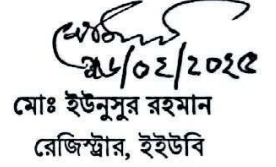 ২৬/০২/২০২৫
মোঃ ইউনুসুর রহমান
রেজিস্ট্রার, ইইউবি